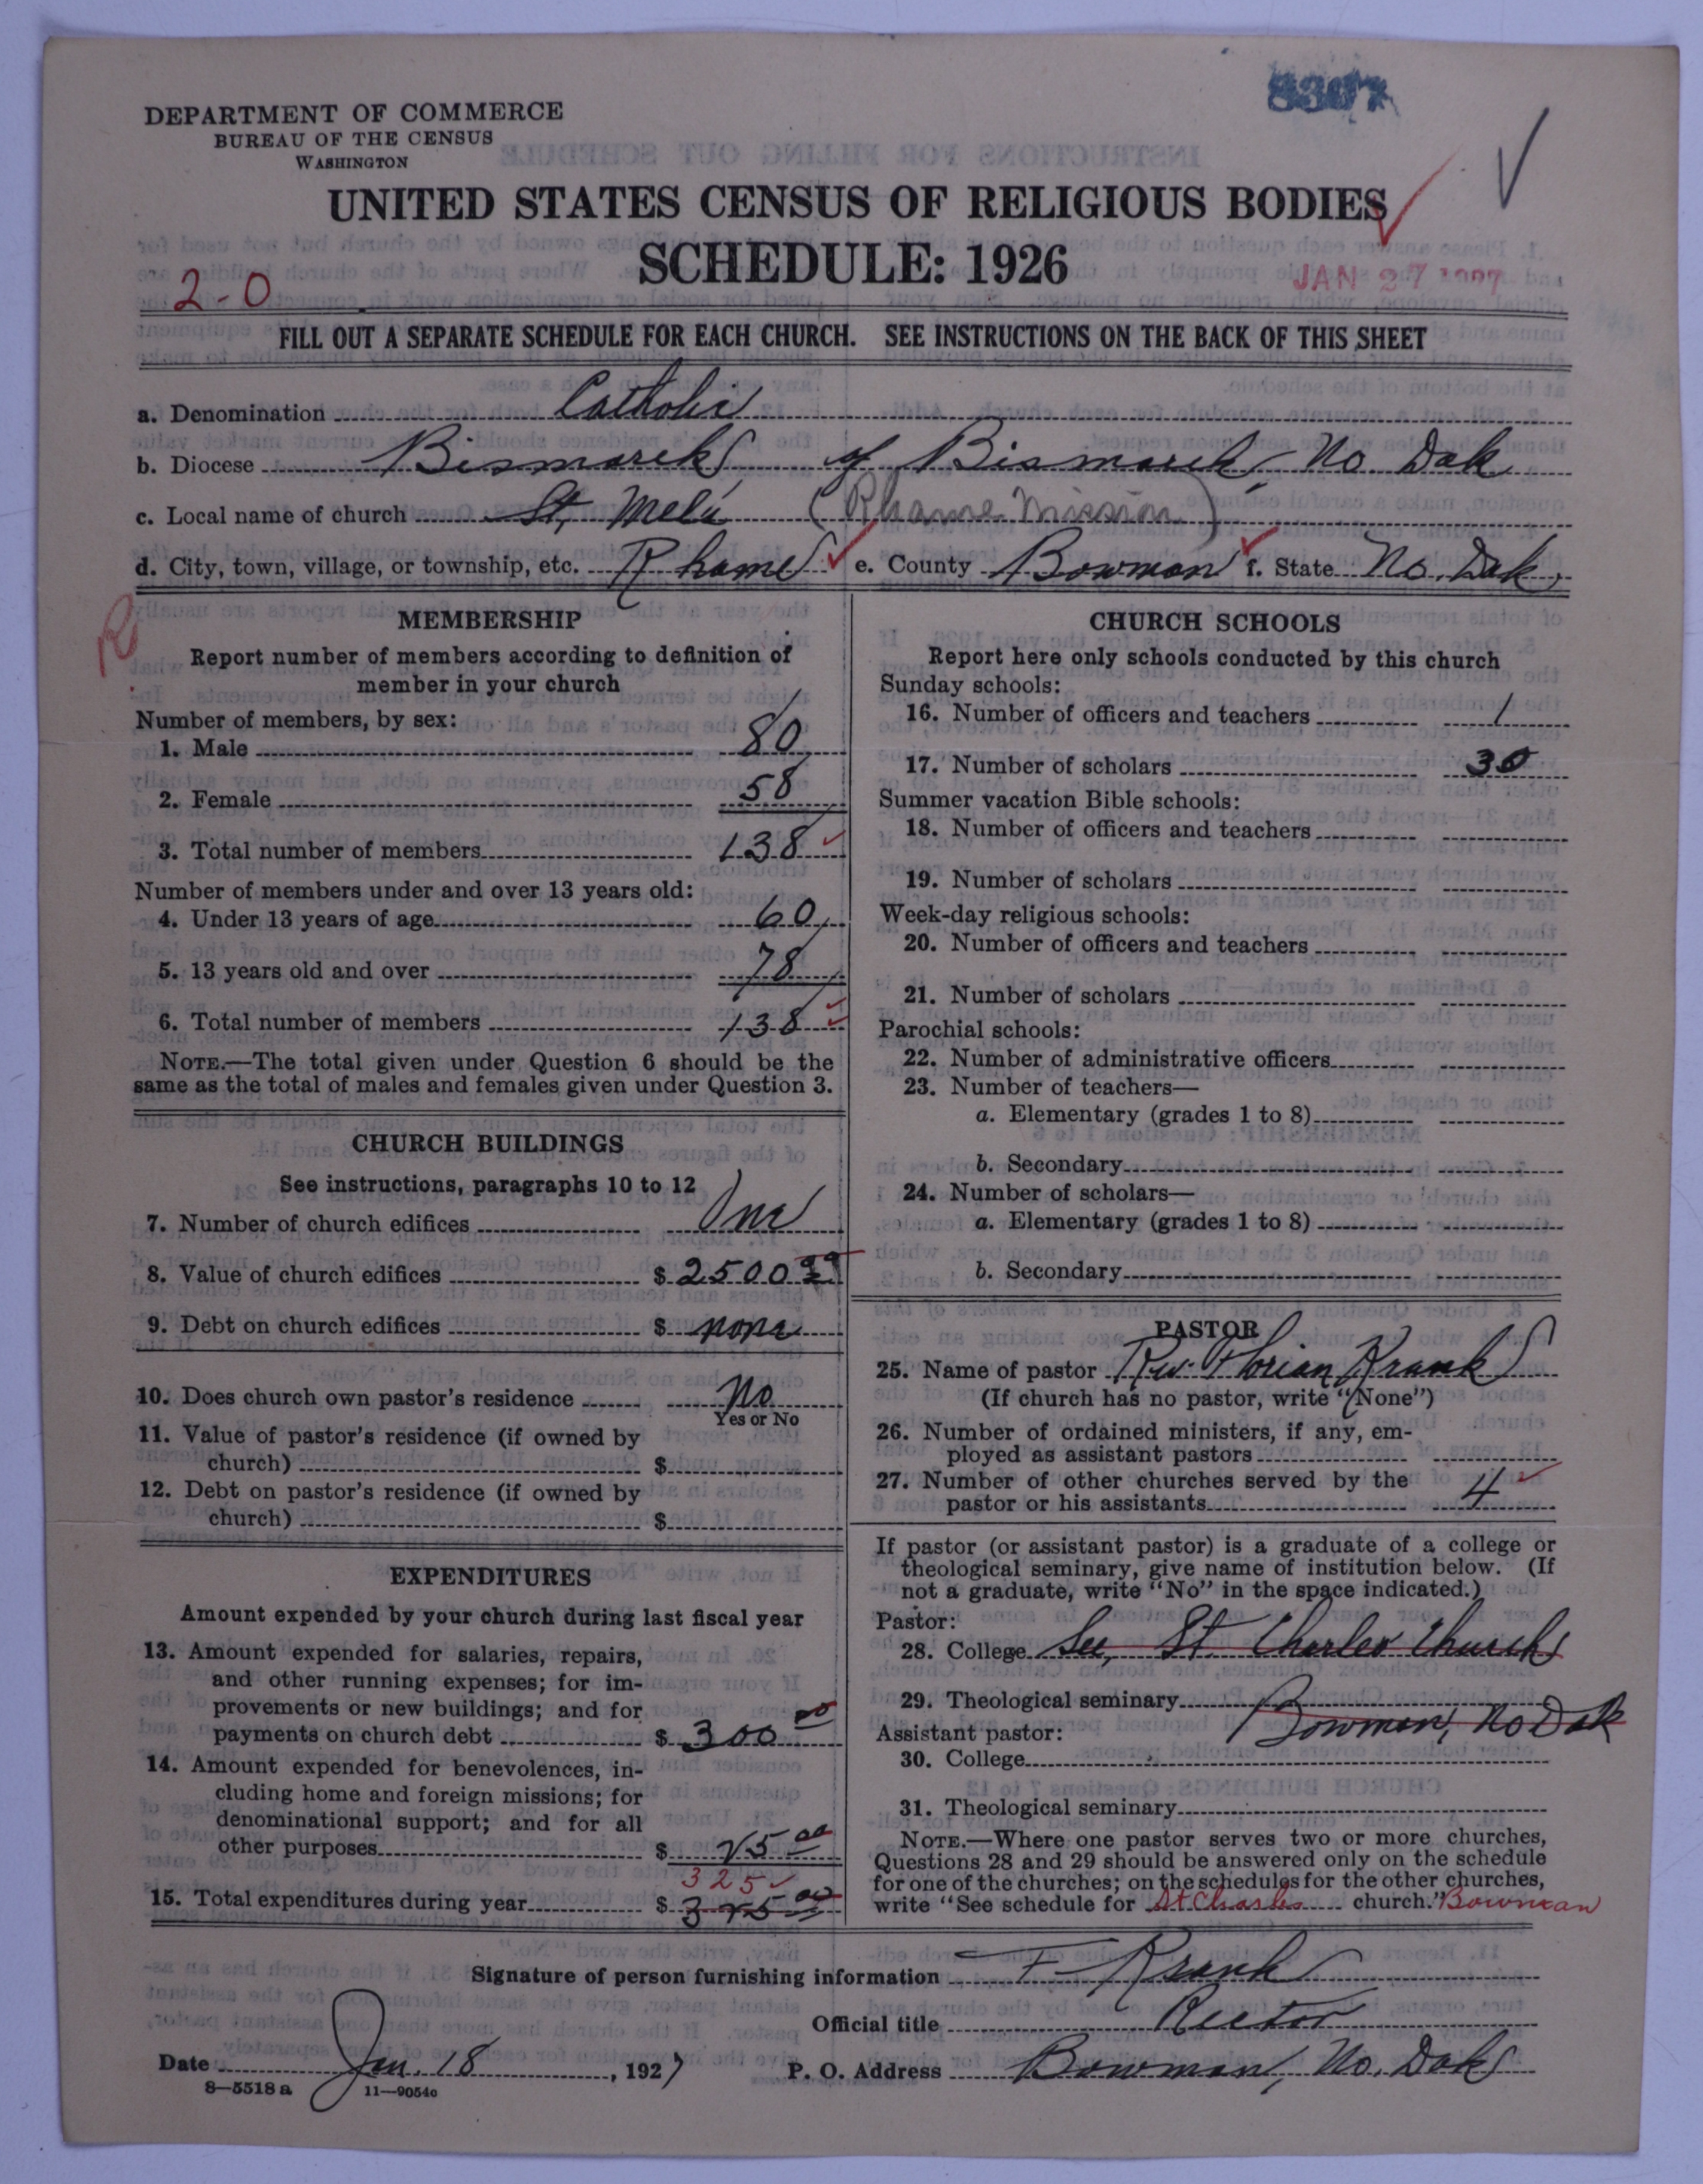 8307
DEPARTMENT OF COMMERCE
BUREAU OF THE CENSUS
WASHINGTON
UNITED STATES CENSUS OF RELIGIOUS BODIES
SCHEDULE: 1926
2-0
JAN 27 1927
FILL OUT A SEPARATE SCHEDULE FOR EACH CHURCH. SEE INSTRUCTIONS ON THE BACK OF THIS SHEET
a. Denomination Catholic
b. Diocese Bismarck of Bismarck, No. Dak
c. Local name of church St. Mels (Rhame Mission)
d. City, town, village, or township, etc. Rhame e. County Bowman f. State No. Dak.
R
MEMBERSHIP
Report number of members according to definition of
member in your church
Number of members, by sex:
1. Male 80
2. Female 58
3. Total number of members 138
Number of members under and over 13 years old:
4. Under 13 years of age 60
5. 13 years old and over 78
6. Total number of members 138
NOTE.—The total given under Question 6 should be the
same as the total of males and females given under Question 3.
CHURCH BUILDINGS
See instructions, paragraphs 10 to 12
7. Number of church edifices One
8. Value of church edifices $ 2500
9. Debt on church edifices $ none
10. Does church own pastor's residence No
Yes or No
11. Value of pastor's residence (if owned by
church) $
12. Debt on pastor's residence (if owned by
church) $
EXPENDITURES
Amount expended by your church during last fiscal year
13. Amount expended for salaries, repairs,
and other running expenses; for im-
provements or new buildings; and for
payments on church debt $ 300 00
14. Amount expended for benevolences, in-
cluding home and foreign missions; for
denominational support; and for all
other purposes $ 25 00
325
15. Total expenditures during year $ 325 00
CHURCH SCHOOLS
Report here only schools conducted by this church
Sunday schools:
16. Number of officers and teachers 1
17. Number of scholars 30
Summer vacation Bible schools:
18. Number of officers and teachers
19. Number of scholars
Week-day religious schools:
20. Number of officers and teachers
21. Number of scholars
Parochial schools:
22. Number of administrative officers
23. Number of teachers—
a. Elementary (grades 1 to 8)
b. Secondary
24. Number of scholars—
a. Elementary (grades 1 to 8)
b. Secondary
PASTOR
25. Name of pastor Rev. Florian Krank
(If church has no pastor, write "None")
26. Number of ordained ministers, if any, em-
ployed as assistant pastors
27. Number of other churches served by the
pastor or his assistants 4
If pastor (or assistant pastor) is a graduate of a college or
theological seminary, give name of institution below. (If
not a graduate, write "No" in the space indicated.)
Pastor:
28. College See, St. Charles Church
29. Theological seminary Bowman, No Dak
Assistant pastor:
30. College
31. Theological seminary
NOTE.—Where one pastor serves two or more churches,
Questions 28 and 29 should be answered only on the schedule
for one of the churches; on the schedules for the other churches,
write "See schedule for St Charles church." Bowman
Signature of person furnishing information F Krank
Official title Rector
Date Jan. 18, 1927 P. O. Address Bowman, No. Dak
8—5518 a 11—9054c